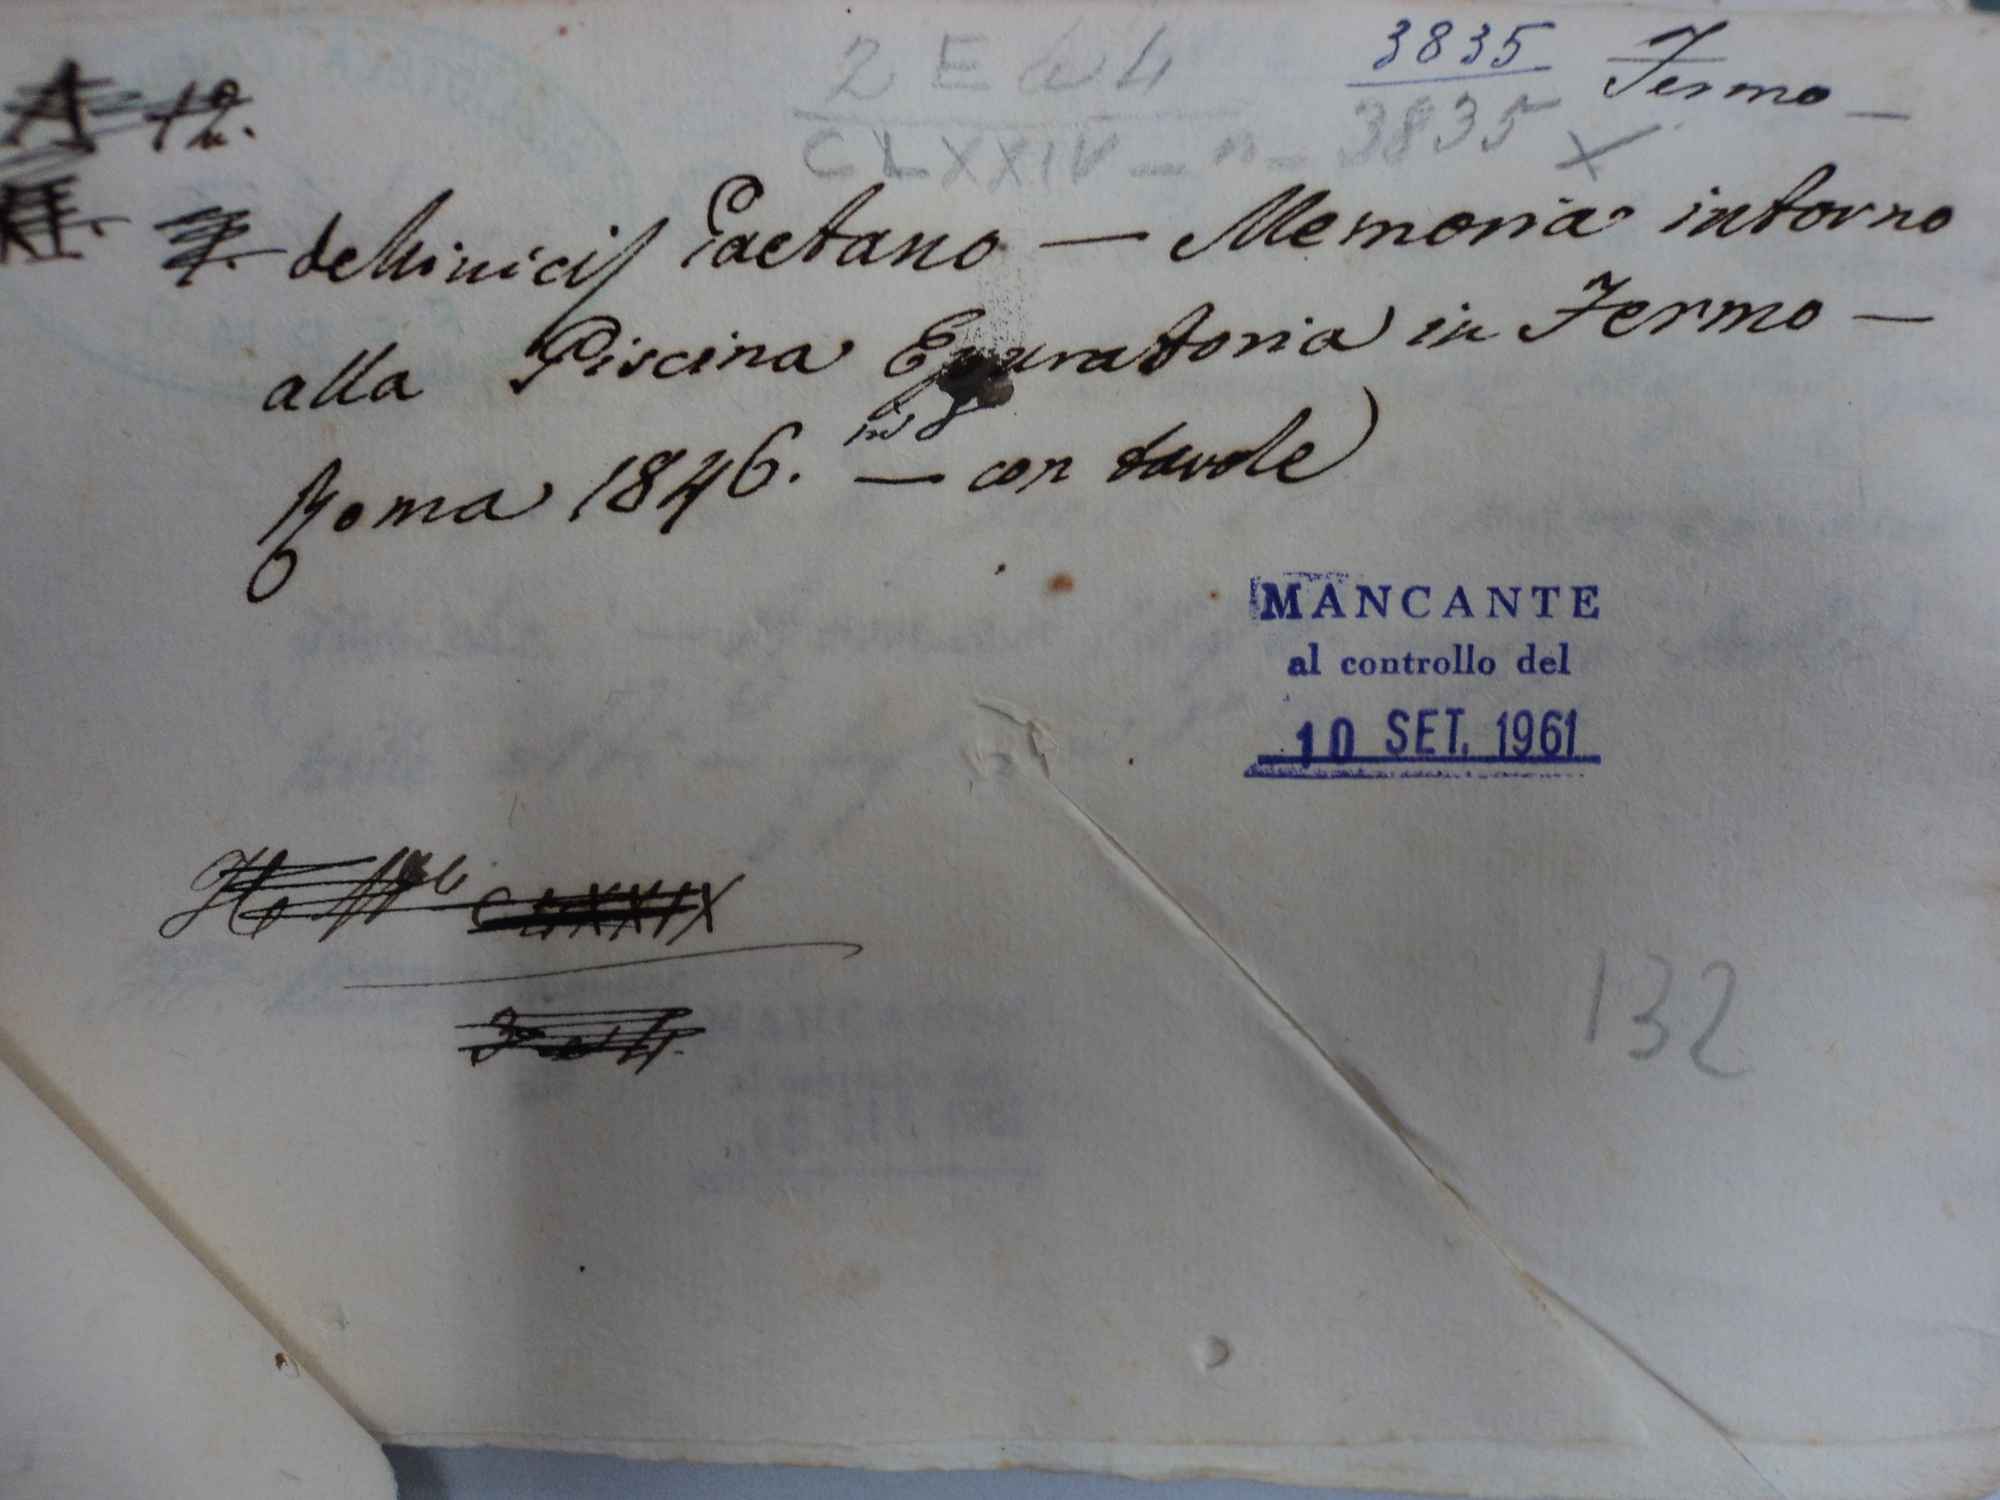 3835 Fermo —
2 E a 4
CLXXIV — n — 3835 X
A 12.
deMinicis Gaetano — Memoria intorno
alla Piscina Epuratoria in Fermo —
Roma 1846. in 8 — con tavole
MANCANTE
al controllo del
10 SET. 1961
CLXXIX
132